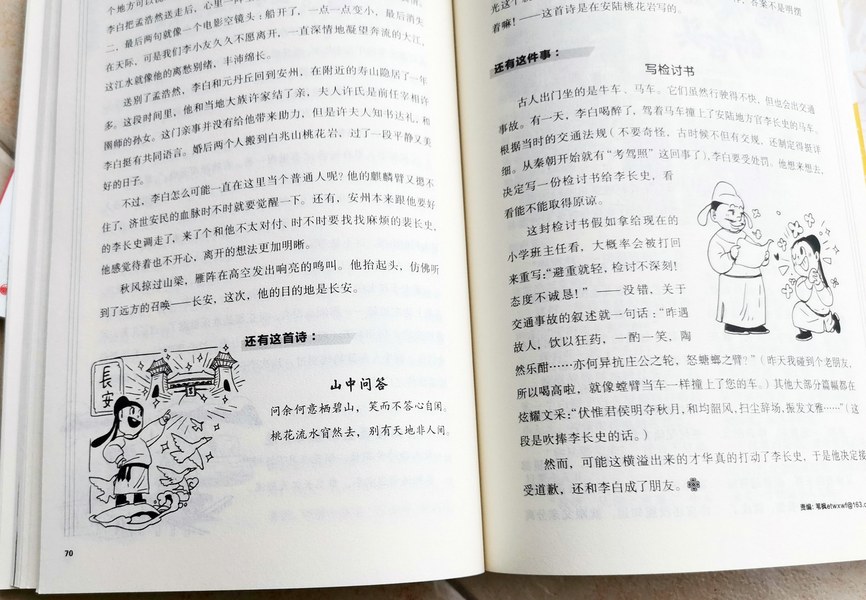 李白把孟浩然送走后，心里一
二，最后两句就像一个电影空镜头：船开了，一点一点变小，最后消失
在天际，可是我们李小友久久不愿离开，一直深情地凝望奔流的大江，
这江水就像他的离愁别绪，丰沛绵长。
送别了孟浩然，李白和元丹丘回到安州，在附近的寿山隐居了一年
多。这段时间里，他和当地大族许家结了亲，夫人许氏是前任宰相许
圉师的孙女。这门亲事并没有给他带来助力，但是许夫人知书达礼，和
李白挺有共同语言。婚后两个人搬到白兆山桃花岩，过了一段平静又美
好的日子。
不过，李白怎么可能一直在这里当个普通人呢？他的麒麟臂又摁不
住了，济世安民的血脉时不时就要觉醒一下。还有，安州本来跟他要好
的李长史调走了，来了个和他不太对付、时不时要找找麻烦的裴长史，
他感觉待着也不开心，离开的想法更加明晰。
秋风掠过山梁，雁阵在高空发出响亮的鸣叫。他抬起头，仿佛听
到了远方的召唤——长安，这次，他的目的地是长安。
还有这首诗：
山中问答
问余何意栖碧山，笑而不答心自闲。
桃花流水窅然去，别有天地非人间。
長安
70
着嘛！——这首诗是在安陆桃花岩写的。
还有这件事：
写检讨书
古人出门坐的是牛车、马车。它们虽然行驶得不快，但也会出交通
事故。有一天，李白喝醉了，驾着马车撞上了安陆地方官李长史的马车。
根据当时的交通法规（不要奇怪，古时候不但有交规，还制定得挺详
细。从秦朝开始就有“考驾照”这回事了），李白要受处罚。他想来想去，
决定写一份检讨书给李长史，看
看能不能取得原谅。
这封检讨书假如拿给现在的
小学班主任看，大概率会被打回
来重写：“避重就轻，检讨不深刻！
态度不诚恳！”——没错，关于
交通事故的叙述就一句话：“昨遇
故人，饮以狂药，一酌一笑，陶
然乐酣……亦何异抗庄公之轮，怒螗螂之臂？”（昨天我碰到个老朋友，
所以喝高啦，就像螳臂当车一样撞上了您的车。）其他大部分篇幅都在
炫耀文采：“伏惟君侯明夺秋月，和均韶风，扫尘辞场，振发文雅……”（这
段是吹捧李长史的话。）
然而，可能这横溢出来的才华真的打动了李长史，于是他决定接
受道歉，还和李白成了朋友。